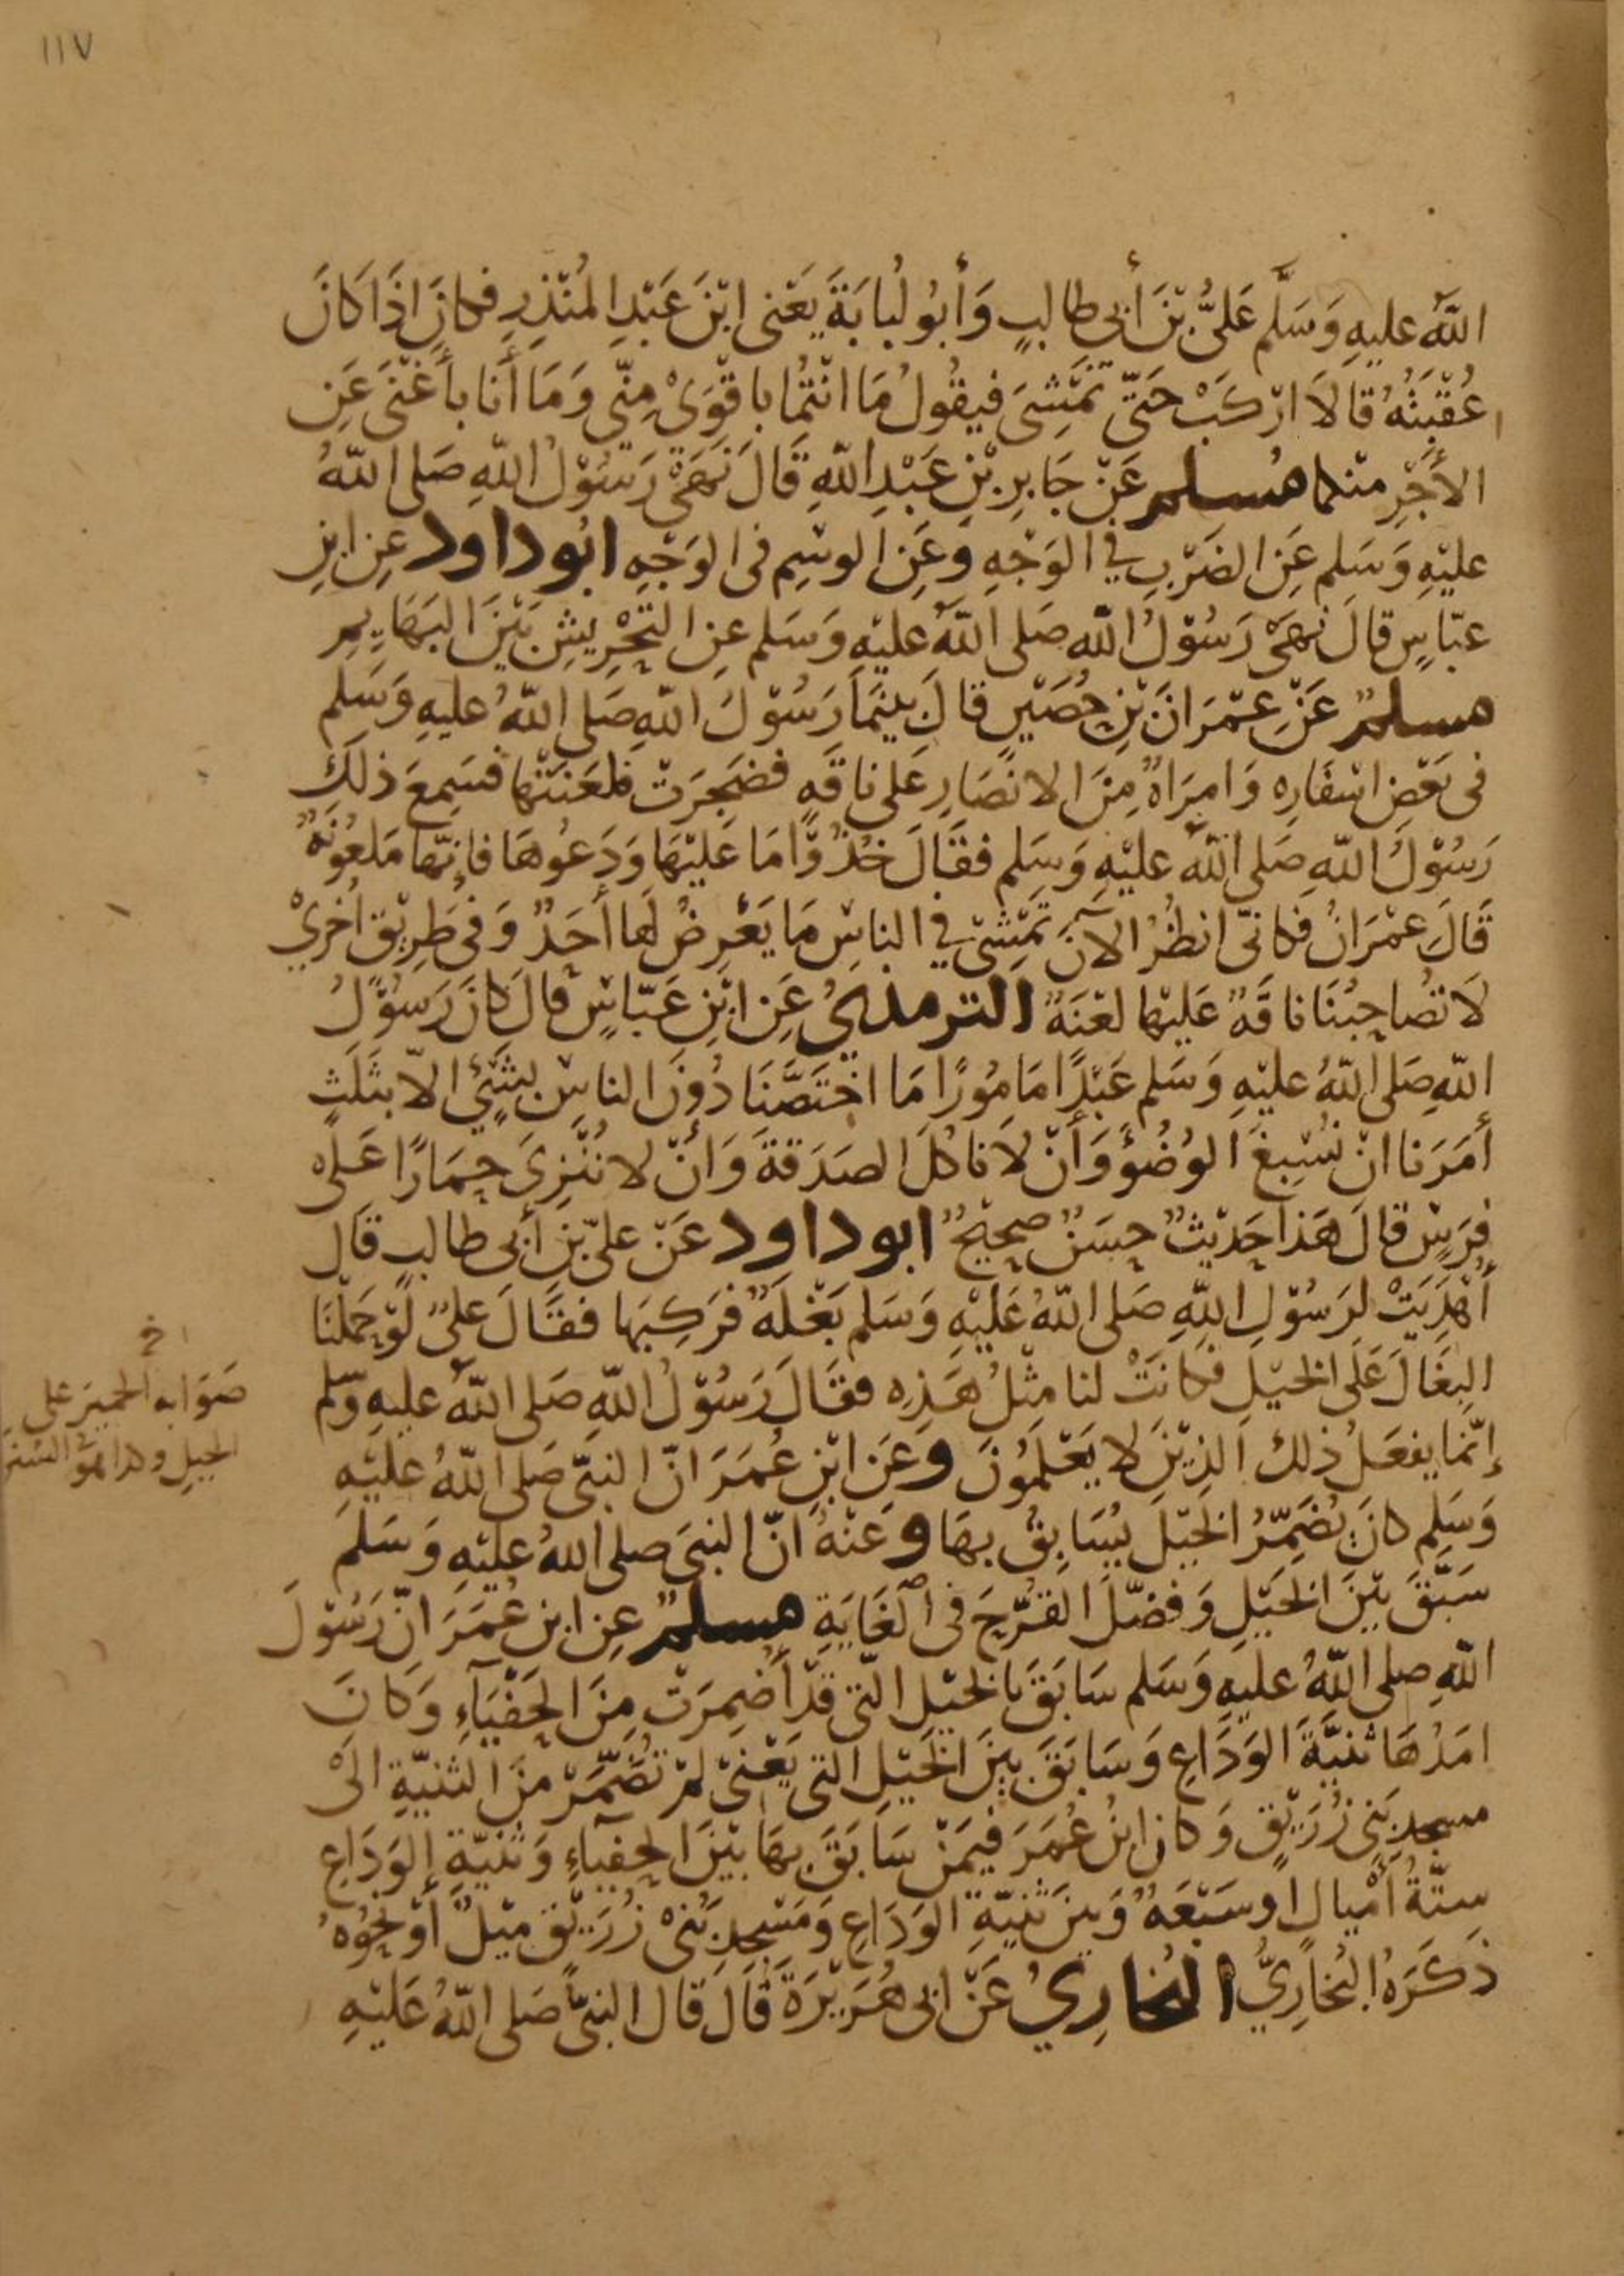 ١١٧
الله عليهِ وَسَلَّم عَلىُّ بْنَ أبى طالبٍ وَأبُو لُبابَةَ يَعْنى ابْنَ عَبْدِ المُنْذِرِ فكانَ اذَا كَانَ
عُقْبَتُهُ قالاَ ارْكَبْ حَتّى نَمْشِىَ فيقُولُ مَا انْتُما باقْوَىْ مِنّى وَمَا أنا بأغْنَى عَنِ
الأجْرِ منْكما مُسلم عَنْ جَابِرِ بْنِ عَبْدِ اللّهِ قَالَ نَهَىْ رَسُوْلُ اللّهِ صَلى اللّهُ
عليْهِ وَسَلم عَنِ الضَرْبِ في الوَجْهِ وَعَنِ الوسْمِ فى الوَجْهِ ابُو داود عنِ ابْنِ
عبّاسٍ قالَ نَهَىْ رَسُوْلُ اللّه صَلى اللّهُ عليْهِ وَسَلم عنِ التحْرِيْشِ بَيْنَ البَهَايِمِ
مسلمٌ عَنْ عِمْرَانَ بْنِ حُصَيْنٍ قالَ بينَمَا رَسُوْلُ اللّهِ صَلى اللّهُ عليهِ وَسَلم
فى بَعْضِ اسْفَارِه وَامرَاةٌ مِنَ الانْصَارِ عَلى ناقَهٍ فضَجِرَتْ فلعَنَتْها فسَمِعَ ذلكَ
رَسُوْلُ اللّهِ صَلى اللّهُ عليْهِ وَسَلم فقَالَ خُذُوْا مَا عَليْهَا وَدَعُوهَا فانّها مَلعُونَةٌ
قَالَ عمْرَانُ فكانّى انظُرُ الآنَ تَمْشىْ في الناسِ مَا يَعْرِضُ لَها أَحَدٌ وَفى طَرِيْقٍ اُخرىْ
لاَ تُصاحِبُنَا ناقَهٌ عَليْها لعْنَهٌ الترمذيُ عَنِ ابْنِ عَبّاسٍ قالَ كانَ رَسُوْلُ
اللّهِ صَلى اللّهُ عليْهِ وَسَلم عَبْدًا مَامُورًا مَا اخْتَصَّنَا دُوْنَ الناسِ بشَيْءٍ الاّ بثَلَثٍ
أمَرَنا انْ نُسْبِغَ الوُضُوْءَ وَأنْ لاَ ناكُلَ الصَدَقةَ وَانْ لا نُنْزِىَ حِمَارًا عَلى
فرَسٍ قالَ هَذا حَدِيْثٌ حسَنٌ صحِيْحٌ ابو داود عَنْ علىّ بْنِ أبى طالبٍ قَال
أُهْدِيَتْ لرَسُوْلِ اللّهِ صَلى اللّهُ عَليْهِ وَسَلم بَغْلَهٌ فرَكِبَها فقَالَ علىٌ لَوْ حَمَلْنَا
البِغَالَ عَلَى الخيْلِ فكانَتْ لنا مثْلُ هَذِهِ فقَالَ رَسُوْلُ اللّهِ صَلى اللّهُ عليهِ وَسَّلم
إنّما يفعَلُ ذلك الذِيْنَ لا يَعْلَمُوْنَ وعَنِ ابْنِ عُمَرَ انّ النبىّ صَلى اللّهُ عليْهِ
وَسَلم كانَ يُضَمِّرُ الخَيْلَ يُسَابِقُ بهَا وعَنْهُ انّ النبىَ صلى اللهُ عليْهِ وَسَلمَ
سَبَّقَ بيْنَ الخَيْلِ وَفضّلَ القُرَّحَ فى الغَايَةِ مسلمٌ عنِ ابن عُمَرَ انّ رَسُوْلَ
اللّهِ صلى اللّهُ عليهِ وَسَلم سَابَقَ بالخيْلِ التى قدْ أُضْمِرَتْ مِنَ الحَفْيَآءِ وَكانَ
امَدُهَا ثنيَّةَ الوَدَاعِ وَسَابَقَ بينَ الخَيْلِ التى يَعْنىْ لمْ تُضَمَّرْ منَ الثنيّةِ الىْ
مسجد بَنِى زُرَيْقٍ وَكانَ ابْنُ عُمَرَ فيْمَنْ سَابَقَ بهَا بَيْنَ الحفيَآءِ وَثنيّةِ الوَدَاعِ
ستّةُ أمْيالٍ اوْ سَبْعَهٌ وَبينَ ثنيّةِ الوَدَاعِ وَمَسْجدِ بَنىْ زُرَيْقٍ ميْلٌ أوْ نحْوُهُ
ذكَرَهُ البُخاريُّ البُخارِيُ عَنْ ابى هُرَيْرَةَ قَالَ قال النبىُّ صَلى اللّهُ عَليْهِ
صَوَابه الحميْرَ على
الخيلِ وهذا هو